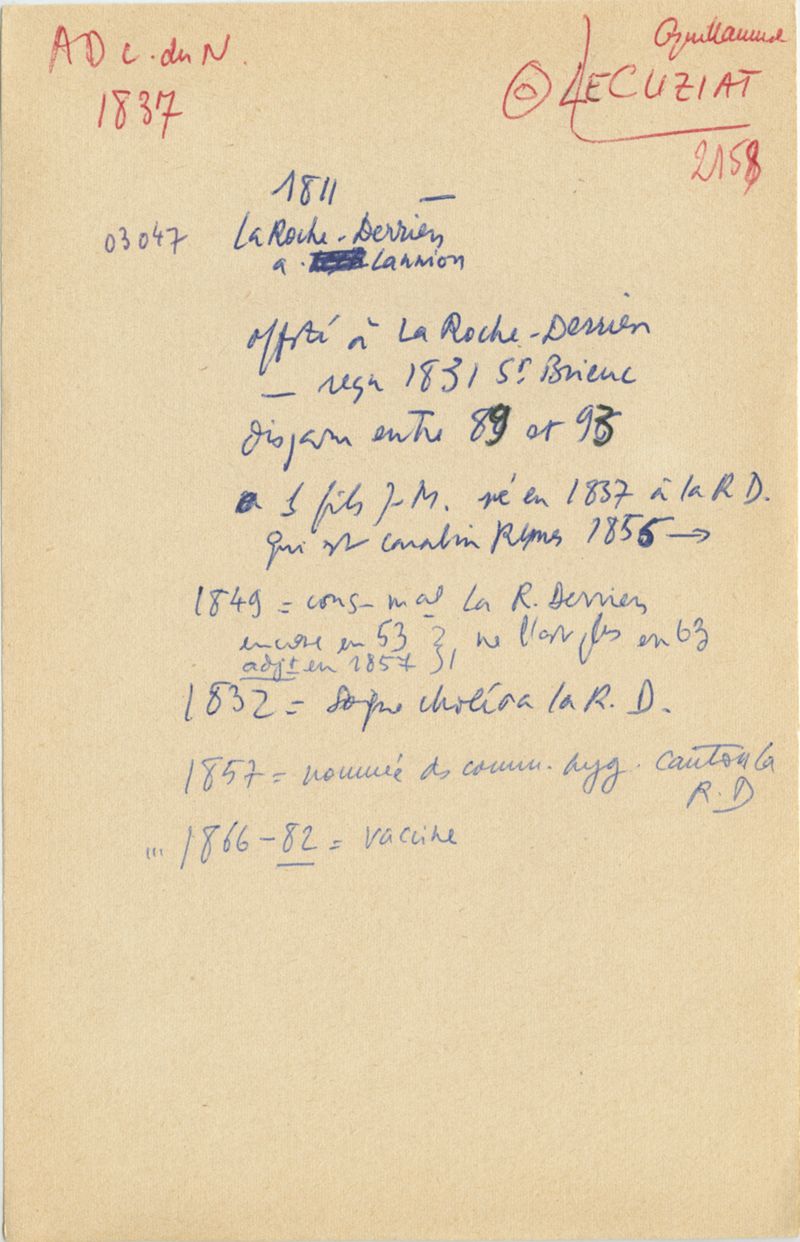 AD C. du N.
1837
Guillaume
LECUZIAT
2158
1811 —
03047 La Roche-Derrien
a. Lannion
off. à La Roche-Derrien
— reçu 1831 St Brieuc
disparu entre 89 et 93
a 1 fils J-M. né en 1837 à la R D.
qui est carabin 1856 →
1849 = cons- mal La R. Derrien
encore en 53 }, ne l'est plus en 63
adjt en 1857 }
1832 = Soigne choléra la R. D.
1857 = nommé ds comm. hyg. canton la
R. D
... 1866-82 = vaccine